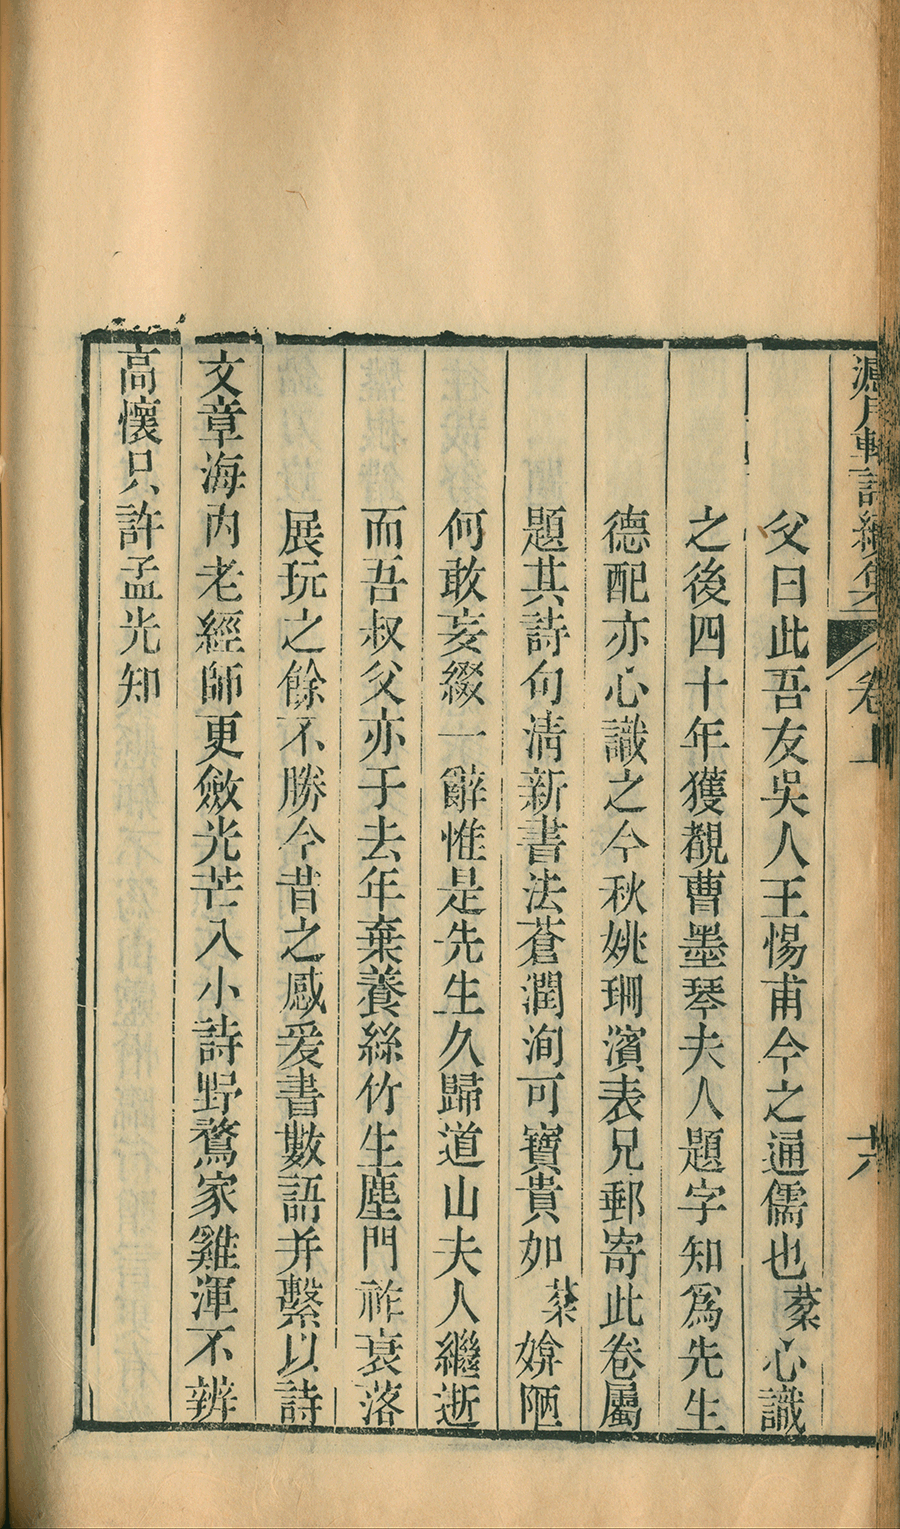 濾月軒詩續集 卷上 六
父曰此吾友吳人王惕甫今之通儒也棻心識
之後四十年獲覩曹墨琴夫人題字知爲先生
德配亦心識之今秋姚珊濱表兄郵寄此卷屬
題其詩句淸新書法蒼潤洵可寶貴如棻媕陋
何敢妄綴一辭惟是先生久歸道山夫人繼逝
而吾叔父亦于去年棄養絲竹生塵門祚衰落
展玩之餘不勝今昔之感爰書數語并繫以詩
文章海内老經師更斂光芒入小詩野鶩家雞渾不辨
高懷只許孟光知